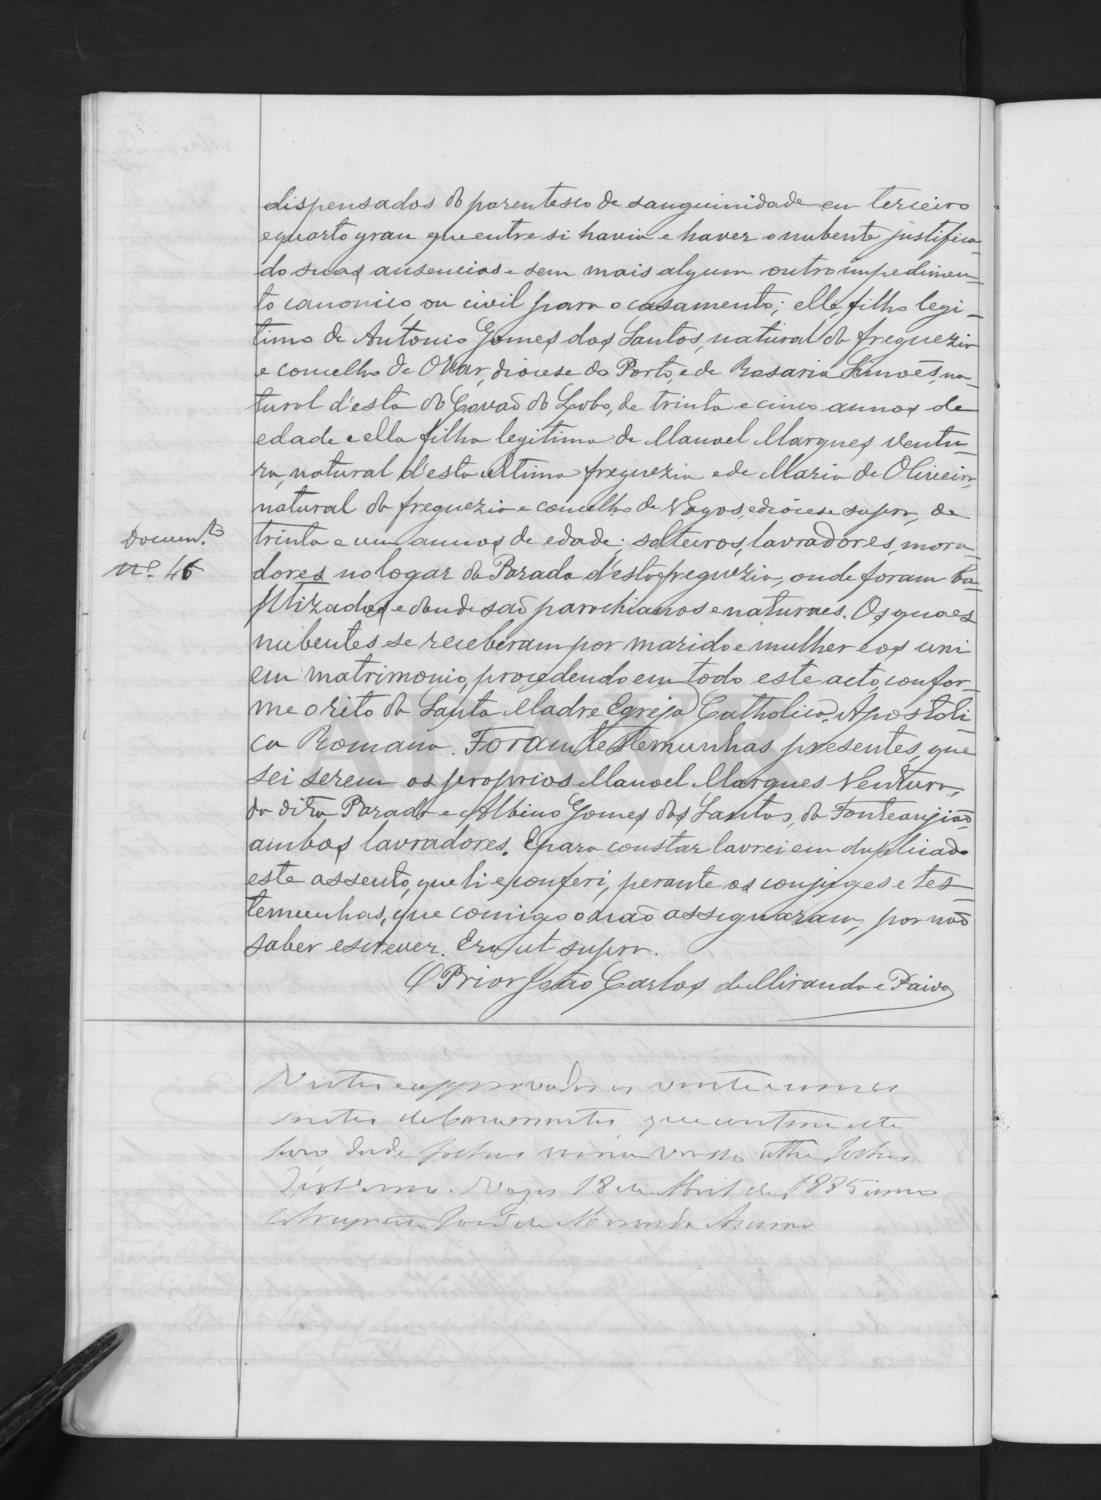 dispensados do parentesco de sanguinidade em terceiro
e quarto grau que entre si havia e haver o nubente justifica-
do suas ausencias e sem mais algum outro impedimen-
to canonico ou civil para o casamento; elle filho legi-
timo de Antonio Gomes dos Santos, natural da freguezia
e concelho de Ovar, diocese do Porto, e de Rosaria Simões, na-
tural d'esta do Covaõ do Lobo, de trinta e cinco annos de
edade e ella filha legitima de Manoel Marques Ventu-
ra, natural d'esta ultima freguezia e de Maria de Oliveira,
natural da freguezia e concelho de Vagos, e diocese supra, de
Docum.to
Nº 46
trinta e um annos de edade; solteiros, lavradores, mora-
dores no logar da Parada d'esta freguezia, onde foram ba-
ptizados e donde saõ parochianos e naturaes. Os quaes
nubentes se receberam por marido e mulher e os uni
em matrimonio, procedendo em todo este acto, confor-
me o rito da Santa Madre Egreja Catholica, Apostoli-
ca Romana. Foram testemunhas presentes, que
sei serem os proprios Manoel Marques Ventura,
da dita Parada e Albino Gomes dos Santos, da Fonteanjiaõ
ambos lavradores. E para constar lavrei em duplicado
este assento, que li e conferi, perante os conjuges e tes-
temunhas, que comigo o naõ assignaram, por naõ
saber escrever. Era ut supra.
O Prior João Carlos de Miranda e Paiva
Vistos e approvados os vinte e
de Casamentos, que contem este
livro desde folhas verso athe folhas
Vagos 18 de Abril de 1885
de Miranda
ADAVR